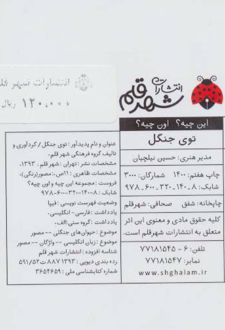 انتشارات شهر قلم
۱۲۰.۰۰۰ ریال
انتشارات
شهر قلم
این چیه؟ اون چیه؟
توی جنگل
مدیر هنری: حسین نیلچیان
چاپ هفتم: ۱۴۰۰ شمارگان: ۳۰۰۰
شابک: ۸-۱۴۰-۳۲۰-۶۰۰-۹۷۸
چاپخانه: شفق صحافی: شهرقلم
کلیه حقوق مادی و معنوی این اثر
متعلق به انتشارات شهرقلم است.
تلفن: ۶-۷۷۱۸۱۵۴۵
نمابر: ۷۷۱۸۱۵۴۷
www.shghalam.ir
عنوان و نام پدیدآور: توی جنگل/ گردآوری و
تالیف گروه فرهنگی شهر قلم.
مشخصات نشر: تهران: شهر قلم، ۱۳۹۳.
مشخصات ظاهری: ۱۱ص.: مصور(رنگی).
فروست: مجموعه این چیه و اون چیه؟
شابک: ۸-۱۴۰-۳۲۰-۶۰۰-۹۷۸
وضعیت فهرست نویسی: فیپا
یادداشت: فارسی - انگلیسی.
یادداشت: گروه سنی: الف.
موضوع: حیوان‌های جنگلی -- مصور
موضوع: زبان انگلیسی -- واژگان -- مصور
شناسه افزوده: انتشارات شهر قلم
رده بندی دیویی: ۱۳۹۳ ۸۸۷ت ۵۹۱/۵۲
شماره کتابشناسی ملی: ۳۶۵۴۶۵۹